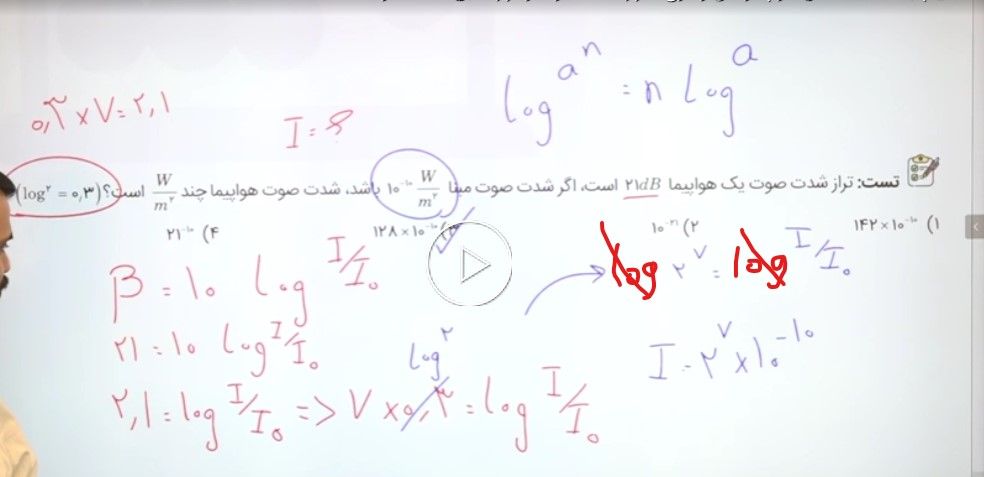 log a^n = n log a
۰٫۳ × ۷ = ۲٫۱
I = ?
تست: تراز شدت صوت یک هواپیما ۲۱dB است، اگر شدت صوت مبنا ۱۰^-۱۰ W/m^۲ باشد، شدت صوت هواپیما چند W/m^۲ است؟ (log^۲ = ۰,۳)
۱) ۱۴۲×۱۰^-۱۰ ۲) ۱۰^-۲۱ ۳) ۱۲۸×۱۰^-۱۰ ۴) ۲۱^-۱۰
β = ۱۰ log I/I₀
log ۲^۷ = log I/I₀
۲۱ = ۱۰ log I/I₀
I = ۲^۷ × ۱۰^-۱۰
log ۲
۲,۱ = log I/I₀ => ۷ × ۰,۳ = log I/I₀